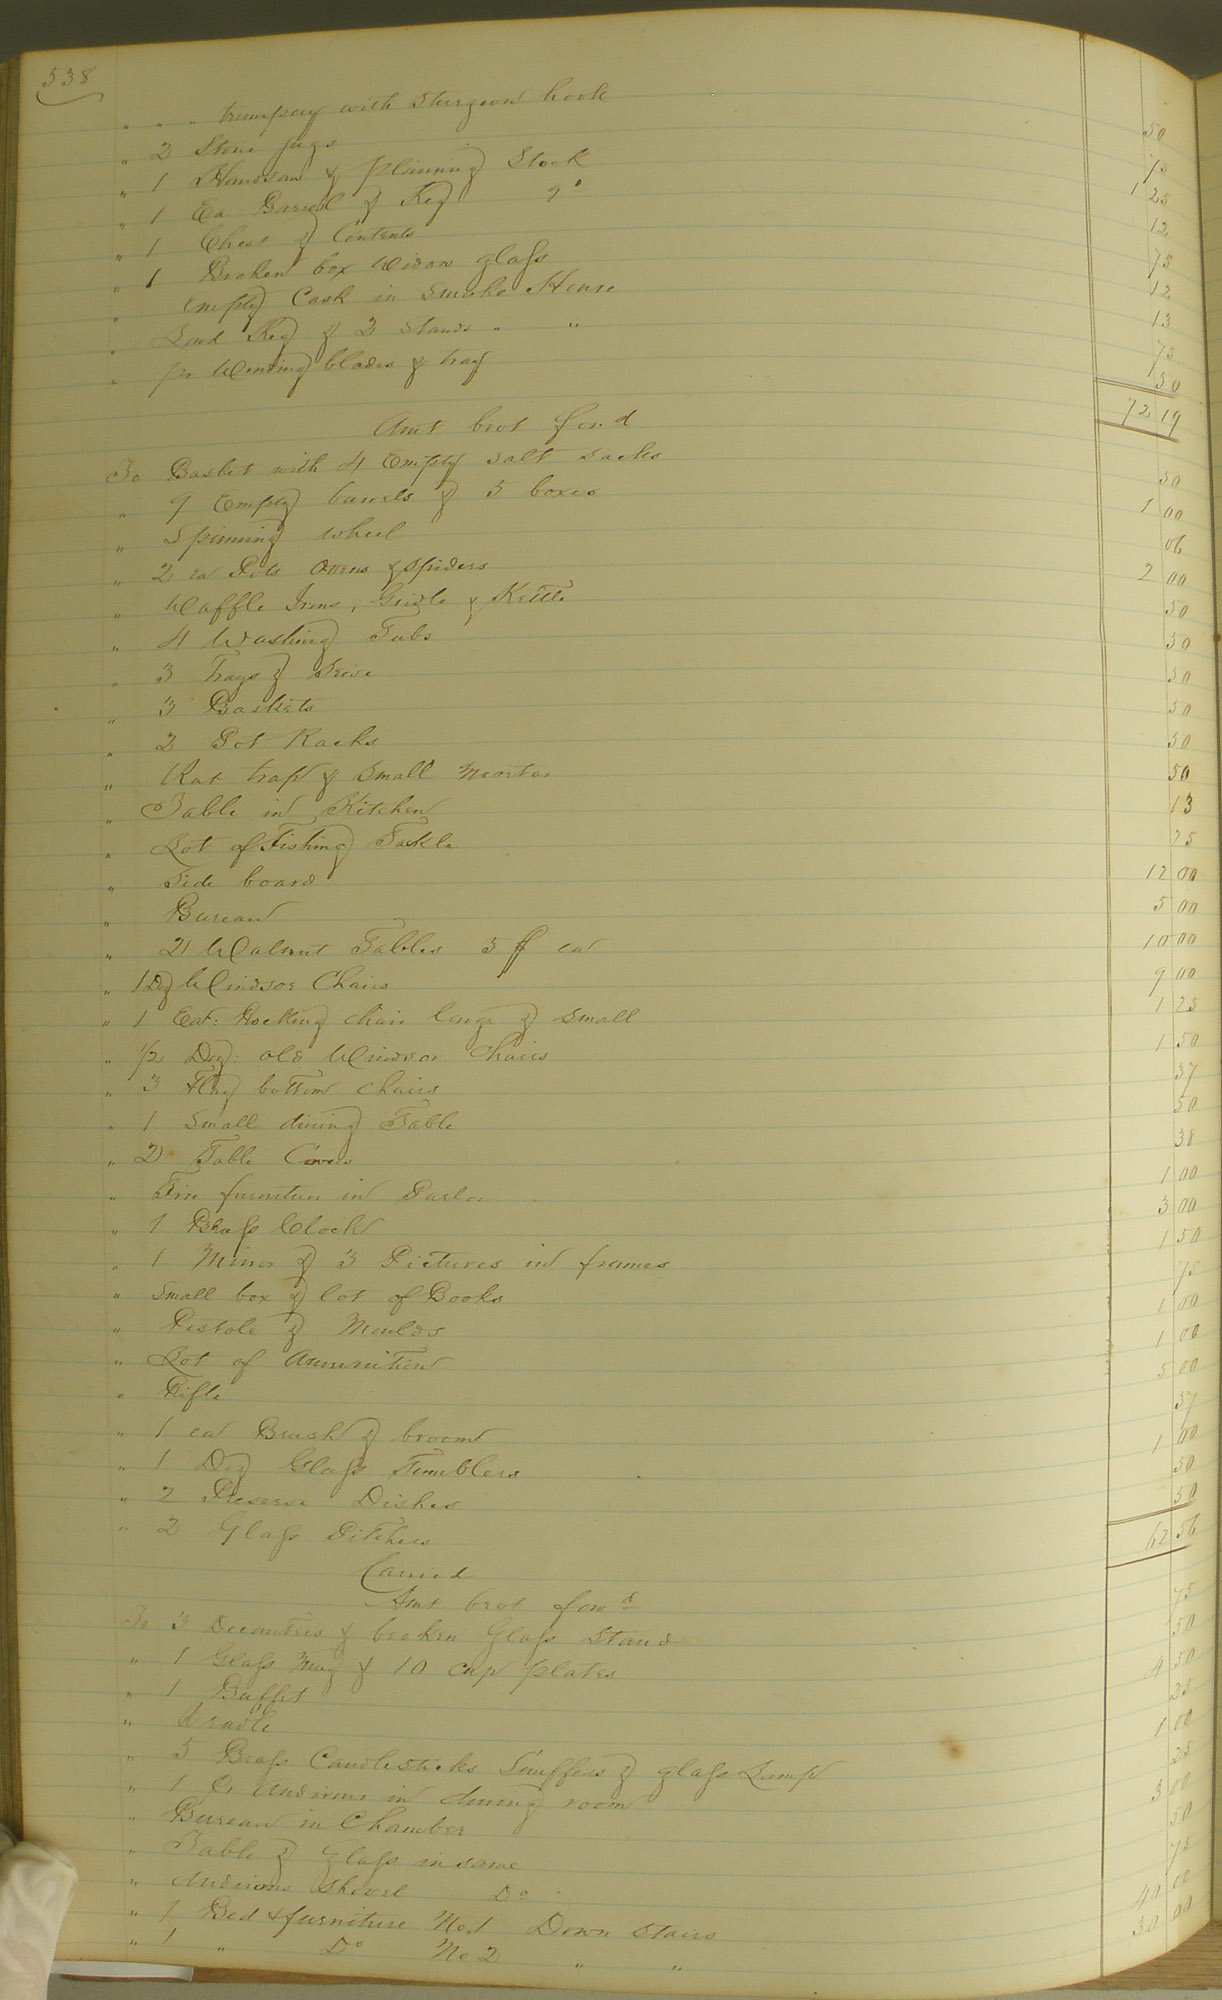 538
" " " trumpery with Sturgeon hook 50
" 3 Stone jugs 75
" 1 Handsaw & planing Stock 1 25
" 1 Ea Barrel & Keg Do 12
" 1 Chest & Contents 75
" 1 Broken box Widow glass 12
" Empty Cask in Smoke House 13
" Lard Keg & 3 stands " " 75
" pr Winding blades & tray 50
Amt brot ford 72 19
To Basket with 4 Empty salt sacks 50
" 9 Empty barrels & 3 boxes 1 00
" Spinning wheel 06
" 2 ea Pots Ovens & Spiders 2 00
" Waffle Irons, Gridle & Kettle 50
" 4 Washing Tubs 50
" 3 Trays & Seive 50
" 3 Baskets 50
" 2 Pot Racks 50
" Rat trap & small Mortar 50
" Table in Kitchen 13
" Lot of Fishing Tackle 25
" Side board 12 00
" Bureau 5 00
" 2 Walnut Tables 5 ff ea 10 00
" 1 Dz Windsor Chairs 9 00
" 1 Ea: Rocking chair large & small 1 25
" 1/2 Dz: old Windsor Chairs 1 50
" 3 Flag bottom chairs 37
" 1 Small dining Table 50
" 2 Table Covers 38
" Fire furniture in Parlor 1 00
" 1 Brass Clock 3 00
" 1 Mirror & 3 Pictures in frames 1 50
" Small box & lot of Books 75
" Pistols & Moulds 1 00
" Lot of Ammunition 1 00
" Rifle 5 00
" 1 ea Brush & broom 37
" 1 Dz Glass Tumblers 1 00
" 2 Preserve Dishes 50
" 2 Glass Pitchers 50
Carried 62 56
Amt brot forwd
To 3 Decanters & broken Glass Stand 75
" 1 Glass Mug & 10 cup plates 50
" 1 Buffet 4 50
" Cradle 25
" 5 Brass Candlesticks Snuffers & glass Lamp 1 00
" 1 Pr Andirons in dining room 25
" Bureau in Chamber 3 00
" Table & Glass in same 50
" Andirons Shovel Do 75
" 1 Bed & furniture No 1 Down Stairs 40 00
" 1 " Do No 2 " " 30 00